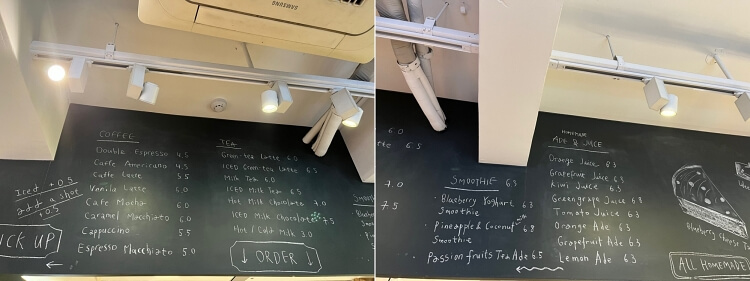 SAMSUNG
COFFEE
Double Espresso 4.5
Caffe Americano 4.5
Caffe Latte 5.5
Vanilla Latte 6.0
Cafe Mocha 6.0
Caramel Macchiato 6.0
Cappuccino 5.5
Espresso Macchiato 5.0
Iced +0.5
add a shot
+0.5
ICK UP
TEA
Green tea Latte 6.0
ICED Green tea Latte 6.5
Milk Tea 6.0
ICED Milk Tea 6.5
Hot Milk Chocolate 7.0
ICED Milk Chocolate 7.5
Hot / Cold Milk 3.0
↓ ORDER ↓
6.0
6.5
7.0
7.5
SMOOTHIE 6.3
· Blueberry Yoghurt 6.3
Smoothie
· Pineapple & Coconut 6.8
Smoothie
· Passion fruits Tea Ade 6.5
HOMEMADE
ADE & JUICE
Orange Juice
Grapefruit Juice
Kiwi Juice
Greengrape Juice 6.8
Tomato Juice 6.3
Orange Ade 6.3
Grapefruit Ade 6.3
Lemon Ade 6.3
Blueberry Cheese
ALL HOMEMADE